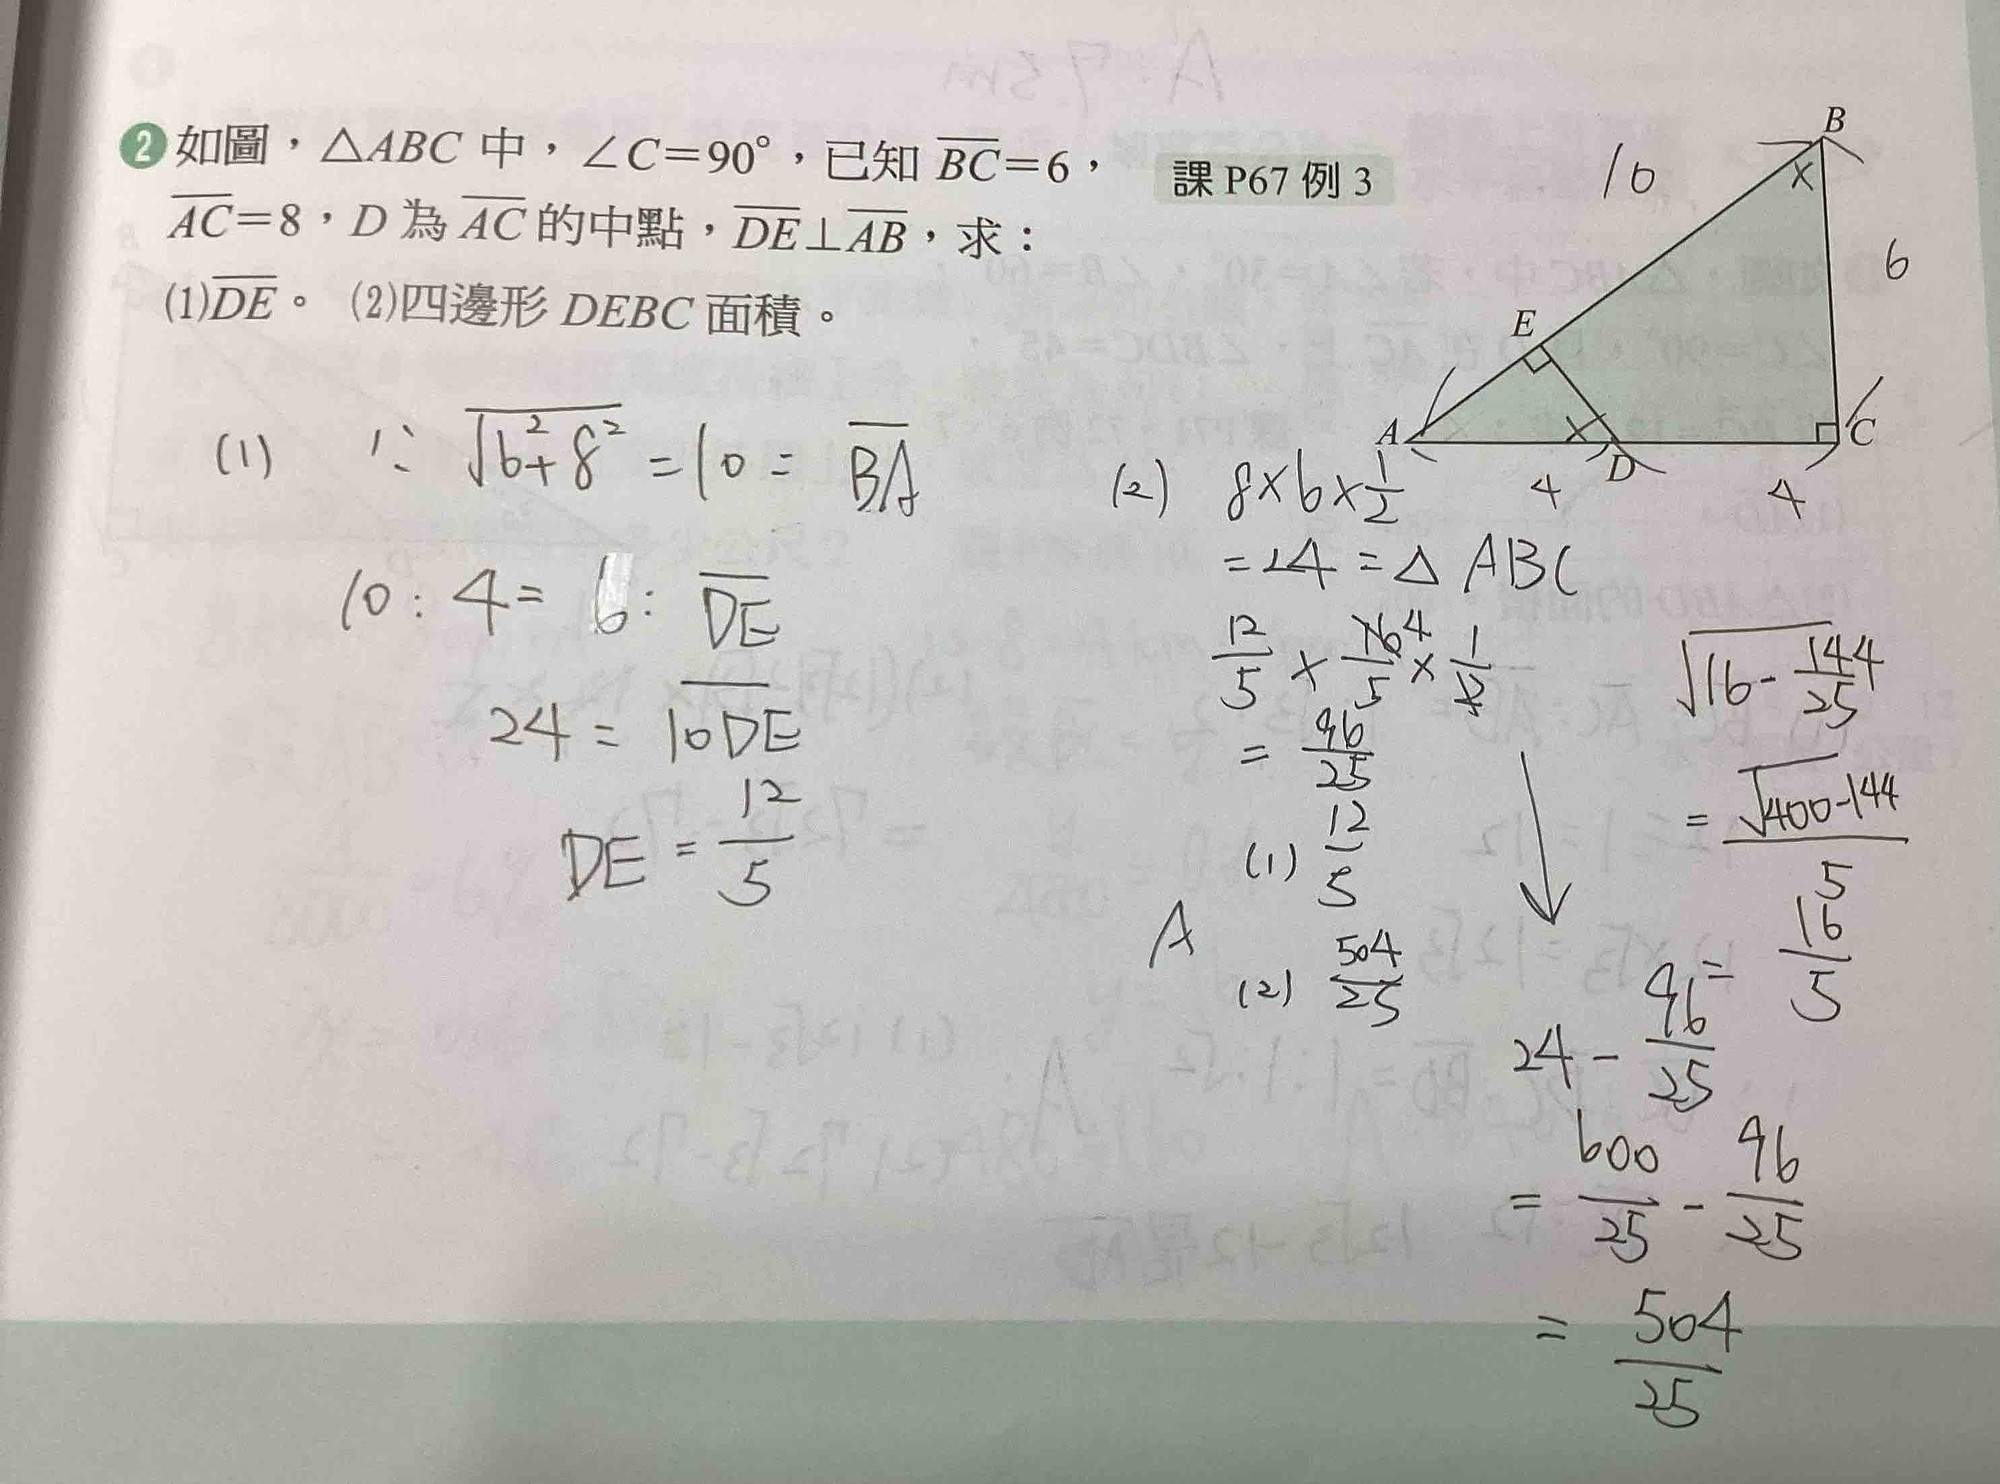 2 如圖，△ABC 中，∠C＝90°，已知 BC＝6，
課 P67 例 3
AC＝8，D 為 AC 的中點，DE⊥AB，求：
(1)DE。 (2)四邊形 DEBC 面積。
B
10
6
E
A
D
C
4
4
(1) ∵ √6²+8² = 10 = BA
10 : 4 = 6 : DE
24 = 10DE
DE = 12/5
(2) 8×6×1/2
= 24 = △ ABC
12/5 × 16/5 × 1/2
4
= 96/25
√16 - 144/25
= √400-144/5
= 16/5
24 - 96/25
= 600/25 - 96/25
= 504/25
A
(1) 12/5
(2) 504/25